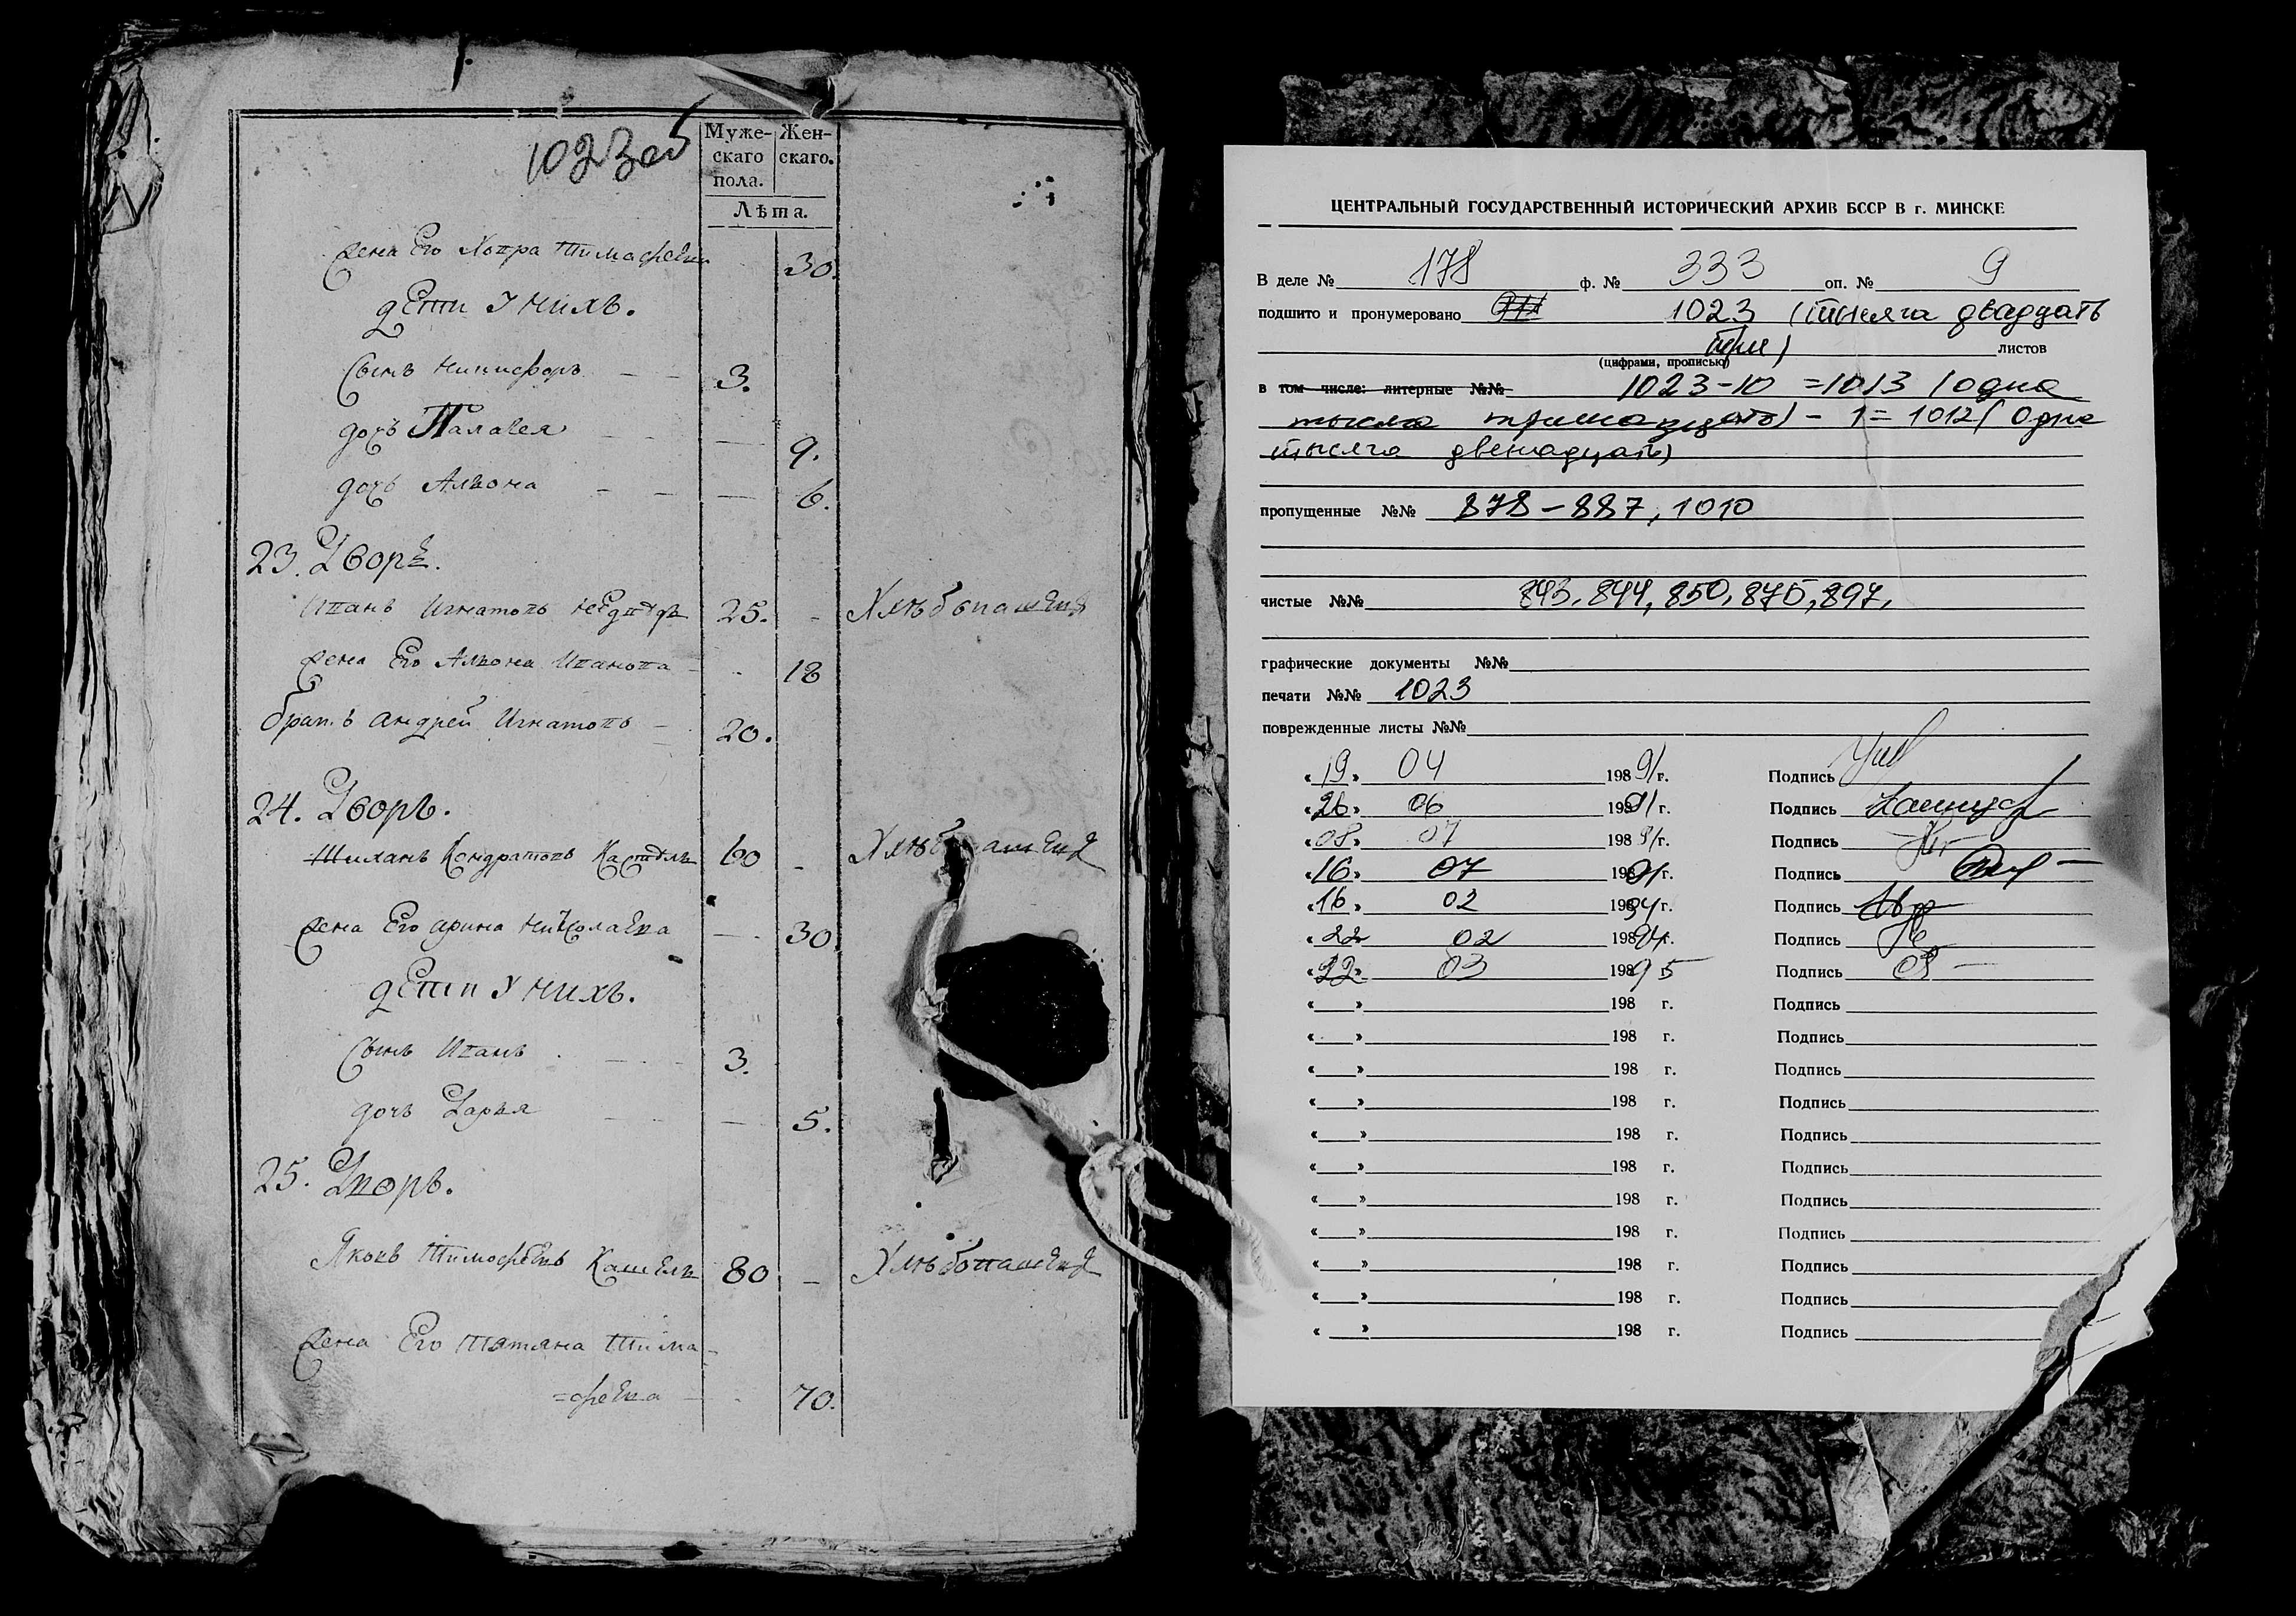 1023 об
Муже- Жен-
скаго скаго.
пола.
Лѣта.
жена Его Тимофеева 30.
дети У нихъ.
Сынъ Никифоръ — — 3.
дочъ Палагея — 9.
дочъ Алѣона — — — 6.
23. Дворъ.
Иванъ Игнатовъ 25. - Хлѣбопашецъ
жена Его Алѣона Иванова 18
братъ андрей Игнатовъ — 20.
24. Дворъ.
Кондратовъ 60 - Хлѣбопашецъ
жена Его арина Николаева — 30.
дети У нихъ.
Сынъ Иванъ 3.
дочъ Дарья — 5.
25. Дворъ.
Яковъ Тимофеевъ Кашель 80 - Хлѣбопашецъ
жена Его Татяна Тима-
=феева - 70.
ЦЕНТРАЛЬНЫЙ ГОСУДАРСТВЕННЫЙ ИСТОРИЧЕСКИЙ АРХИВ БССР В г. МИНСКЕ
В деле № 178 ф. № 333 оп. № 9
подшито и пронумеровано 1023 (тысяча двадцать
три) листов
(цифрами, прописью)
в том числе: литерные №№ 1023-10 =1013 (одна
тысяча тринадцать) - 1 = 1012 (Одна
тысяча двенадцать)
пропущенные №№ 878-887, 1010
чистые №№ 843, 844, 850, 875, 897,
графические документы №№
печати №№ 1023
поврежденные листы №№
«19» 04 198 91 г. Подпись
«26» 06 198 91 г. Подпись
«08» 07 198 91 г. Подпись
«16» 07 198 91 г. Подпись
«16» 02 198 94 г. Подпись
«22» 02 198 94 г. Подпись
«22» 03 198 95 Подпись
«   » 198 г. Подпись
«   » 198 г. Подпись
«   » 198 г. Подпись
«   » 198 г. Подпись
«   » 198 г. Подпись
«   » 198 г. Подпись
«   » 198 г. Подпись
«   » 198 г. Подпись
«   » 198 г. Подпись
«   » 198 г. Подпись
«   » 198 г. Подпись